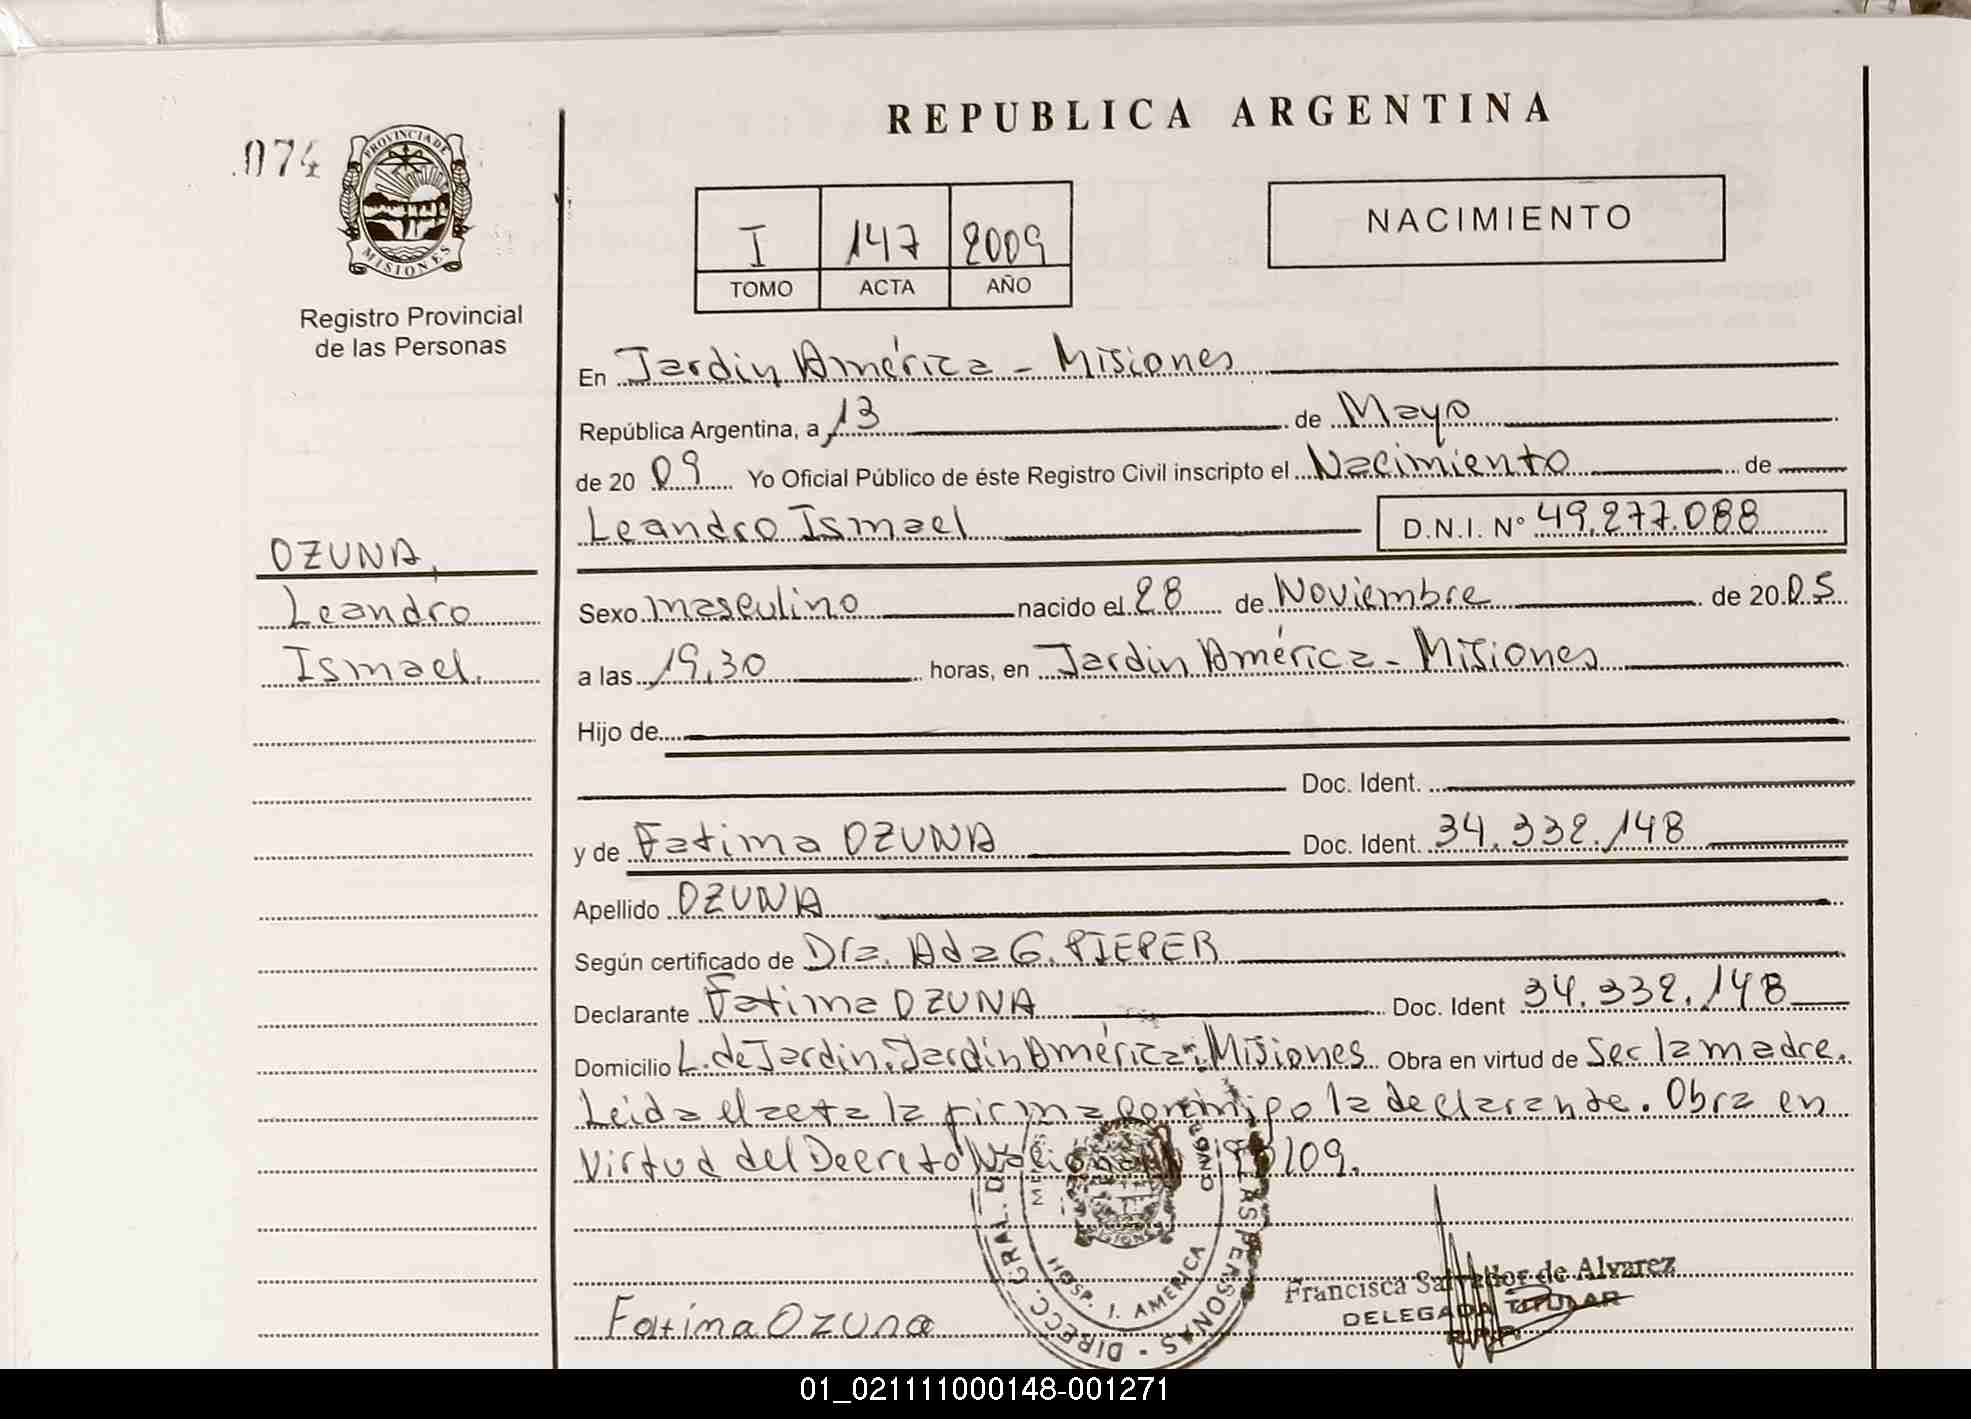 REPUBLICA ARGENTINA
074
PROVINCIA DE
MISIONES
Registro Provincial
de las Personas
I 147 2009
TOMO ACTA AÑO
NACIMIENTO
En Jardin América - Misiones
República Argentina, a 13 de Mayo
de 20 09 Yo Oficial Público de éste Registro Civil inscripto el Nacimiento de
Leandro Ismael D.N.I. N° 49.277.088
OZUNA,
Leandro
Ismael.
Sexo masculino nacido el 28 de Noviembre de 20 05
a las 19,30 horas, en Jardin América - Misiones
Hijo de
Doc. Ident.
y de Fatima OZUNA Doc. Ident. 34.332.148
Apellido OZUNA
Según certificado de Dra. Ada G. PIEPER
Declarante Fatima OZUNA Doc. Ident 34.332.148
Domicilio L. de Jardin, Jardin América - Misiones Obra en virtud de Ser la madre.
Leida el acta la firma conmigo la declarante. Obra en
Virtud del Decreto Nacional /09.
DIRECC. GRAL. D LAS PERSONAS
HOSP. J. AMERICA
Fatima Ozuna
Francisca Salvador de Alvarez
DELEGADA TITULAR
R.P.P.
01_021111000148-001271